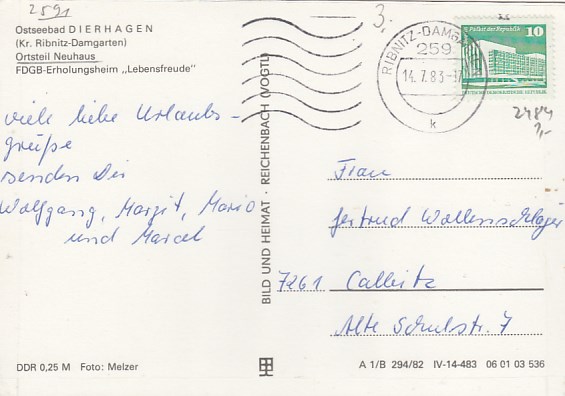 2591
Ostseebad DIERHAGEN
(Kr. Ribnitz-Damgarten)
Ortsteil Neuhaus
FDGB-Erholungsheim „Lebensfreude"
viele liebe Urlaubs-
grüße
senden Dir
Wolfgang, Margit, Mario
und Marcel
DDR 0,25 M Foto: Melzer
BILD UND HEIMAT · REICHENBACH (VOGTL)
3,-
RIBNITZ-DAMGARTEN
259
14.7.83-17
k
Palast der Republik 10
DEUTSCHE DEMOKRATISCHE REPUBLIK
2484
Frau
Gertrud Wallenschlager
7261 Callnitz
Alte Schulstr. 7
A 1/B 294/82 IV-14-483 06 01 03 536